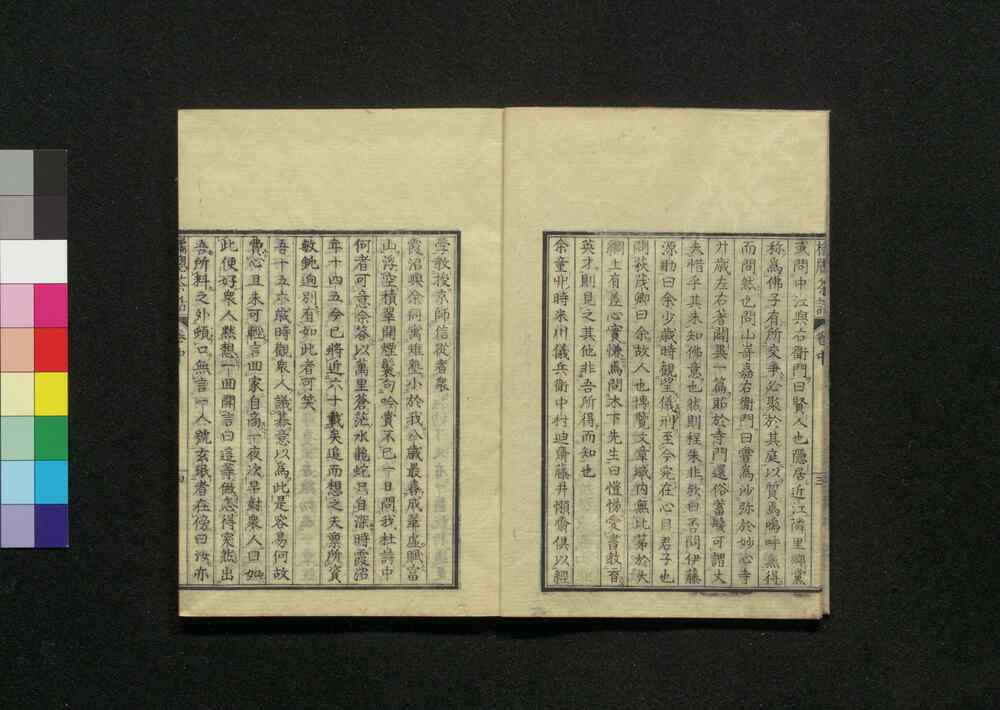 或問中江與右衛門曰賢人也隱居近江隣里鄉黨
称為佛子有所交爭必聚於其庭以質焉嗚呼無得
而間然也問山崎嘉右衛門曰嘗為沙弥於妙心寺
廾歲左右著闢異一篇貼於寺門還俗蓄髮可謂丈
夫惜乎其未知佛意也然則程朱非歟曰否問伊藤
源助曰余少歲時觀望儀刑至今宛在心目君子也
問荻茂卿曰余故人也博覽文章域内無比第於大
綱上有差心實慊焉問木下先生曰愷悌愛書教育
英才則見之其他非吾所得而知也
余童丱時來川儀兵衛中村迪齋藤井懶齋俱以經
學教授京師信從者衆
霞沼與余同寓雉塾小於我八歲最喜成翠虛賦富
山浮空積翠開煙鬟句吟賞不已一日問我杜詩中
何者可意余答以萬里蒼茫水龍蛇只自深時霞沼
年十四五今已將近六十載矣追而想之天禀所資
敏鈍逈別有如此者可笑
吾十五六歲時觀衆人議碁意以為此是容易何故
費心且未可輕言回家自商一夜次早對衆人曰如
此便好衆人黙想一回開言曰這等做怎得突然出
吾所料之外頓口無言一人號玄珉者在傍曰汝亦
卷中
三
四